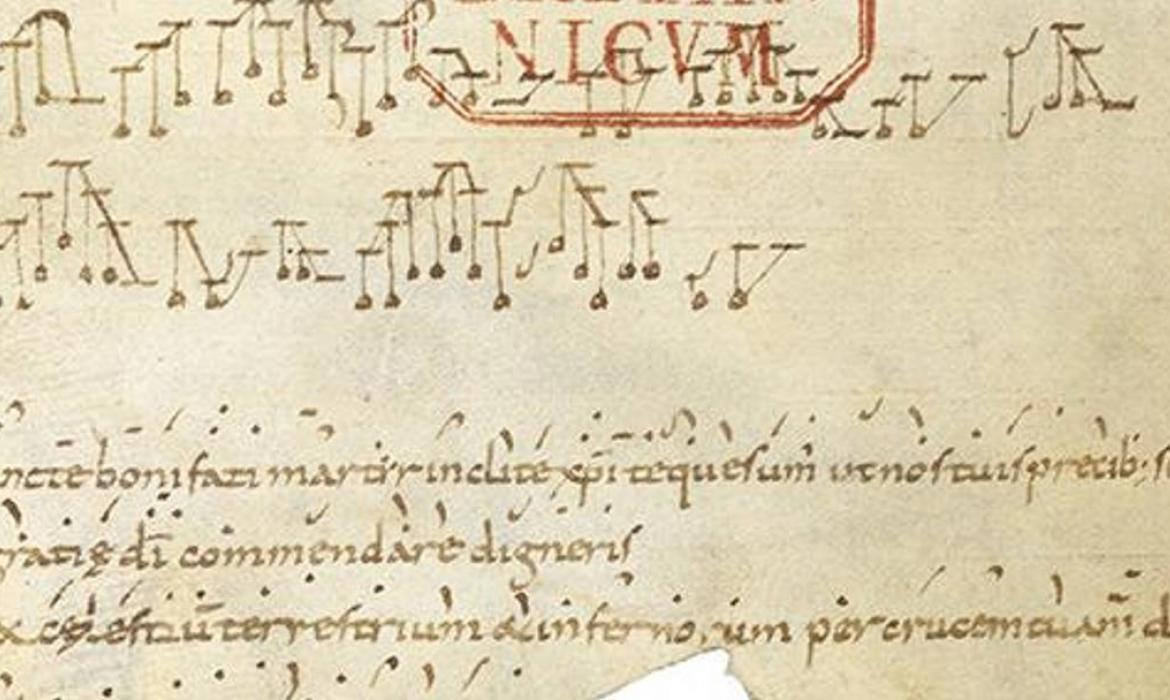 NICVM
ncte bonifati martir inclite xpi te quesum̄ ut nos tuis precib; s
gratię dī commendare digneris
x cęlestiū terrestrium & infernorum per crucem tuam d